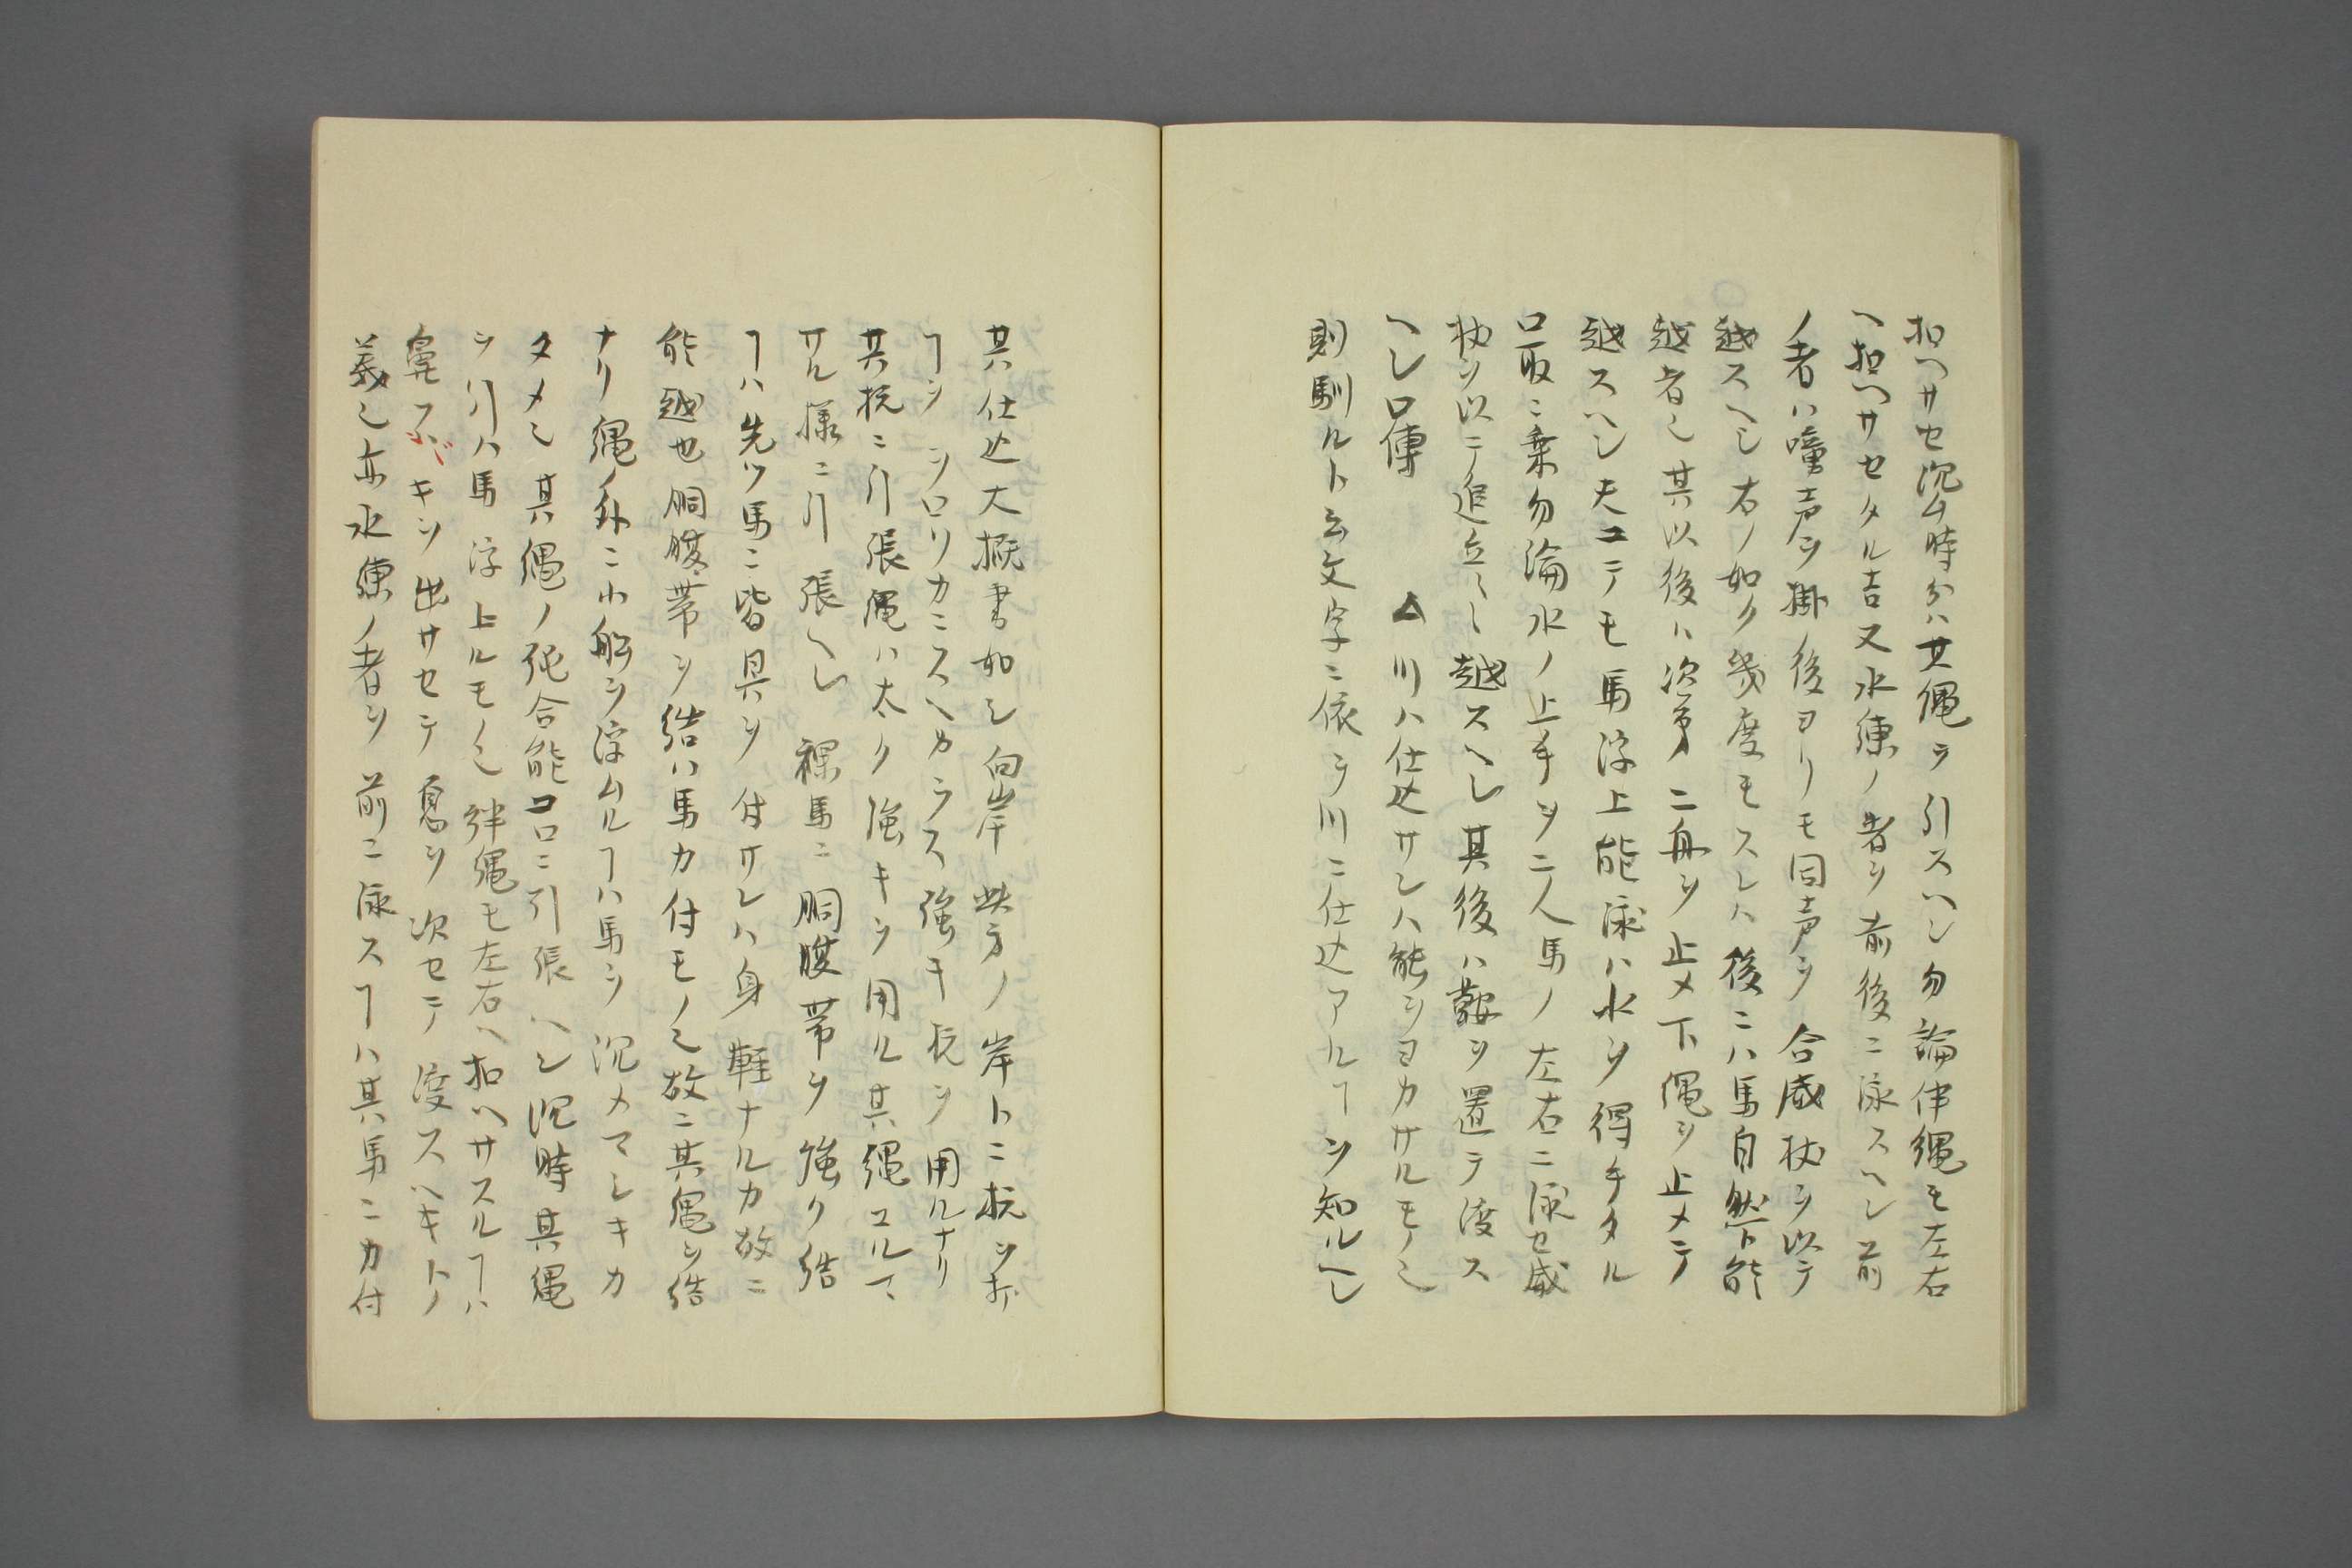 扣ヘサセ沉ム時分ハ其縄ヲ引スヘシ勿論伴縄モ左右
ヘ扣ヘサセタル吉又水練ノ者ヲ前後ニ泳スヘシ前
ノ者ハ噇声ヲ掛ノ後ヨリモ同声ヲ合威杖ヲ以テ
越スヘシ右ノ如ク幾度モスレハ後ニハ馬自然ト能
越者也其以後ハ次第ニ舟ヲ止メ下縄ヲ止メテ
越スヘシ夫ニテモ馬浮上能泳ハ水ヲ得手タル
口取ニ乗勿論水ノ上手ヲ二人馬ノ左右ニ泳セ威
杖ヲ以ニ追立〻越スヘシ其後ハ鞍ヲ置テ渡ス
ヘシ口傳　▲川ハ仕込サレハ能ヲヨカサルモノ也
則馴ルト云文字ニ依テ川ニ仕込アルヿヲ知ルヘシ
其仕込大概書如シ向岸此方ノ岸トニ杭ヲ打
ヿヲソロリカニスヘカラス強キ杭ヲ用ルナリ
其杭ニ引張縄ハ太ク強キヲ用ル其縄ユルマ
サル様ニ引張ヘシ裸馬ニ胴腹帯ヲ強ク結
ヿハ先ツ馬ニ皆具ヲ付サレハ身軽ナルカ故ニ
能越也胴腹帯ヲ結ハ馬カ付モノ也故ニ其縄ヲ結
ナリ縄ノ外ニ小船ヲ浮ムルヿハ馬ヲ沉メマシキカ
タメ也其縄ノ張合能コロニ引張ヘシ沉時其縄
ヲ引ハ馬浮上ルモノ也絆縄モ左右ヘ扣ヘサスルヿハ
鼻スブキヲ出サセテ息ヲ次セテ渡スヘキトノ
義也亦水練ノ者ヲ前ニ泳スヿハ其馬ニカ付